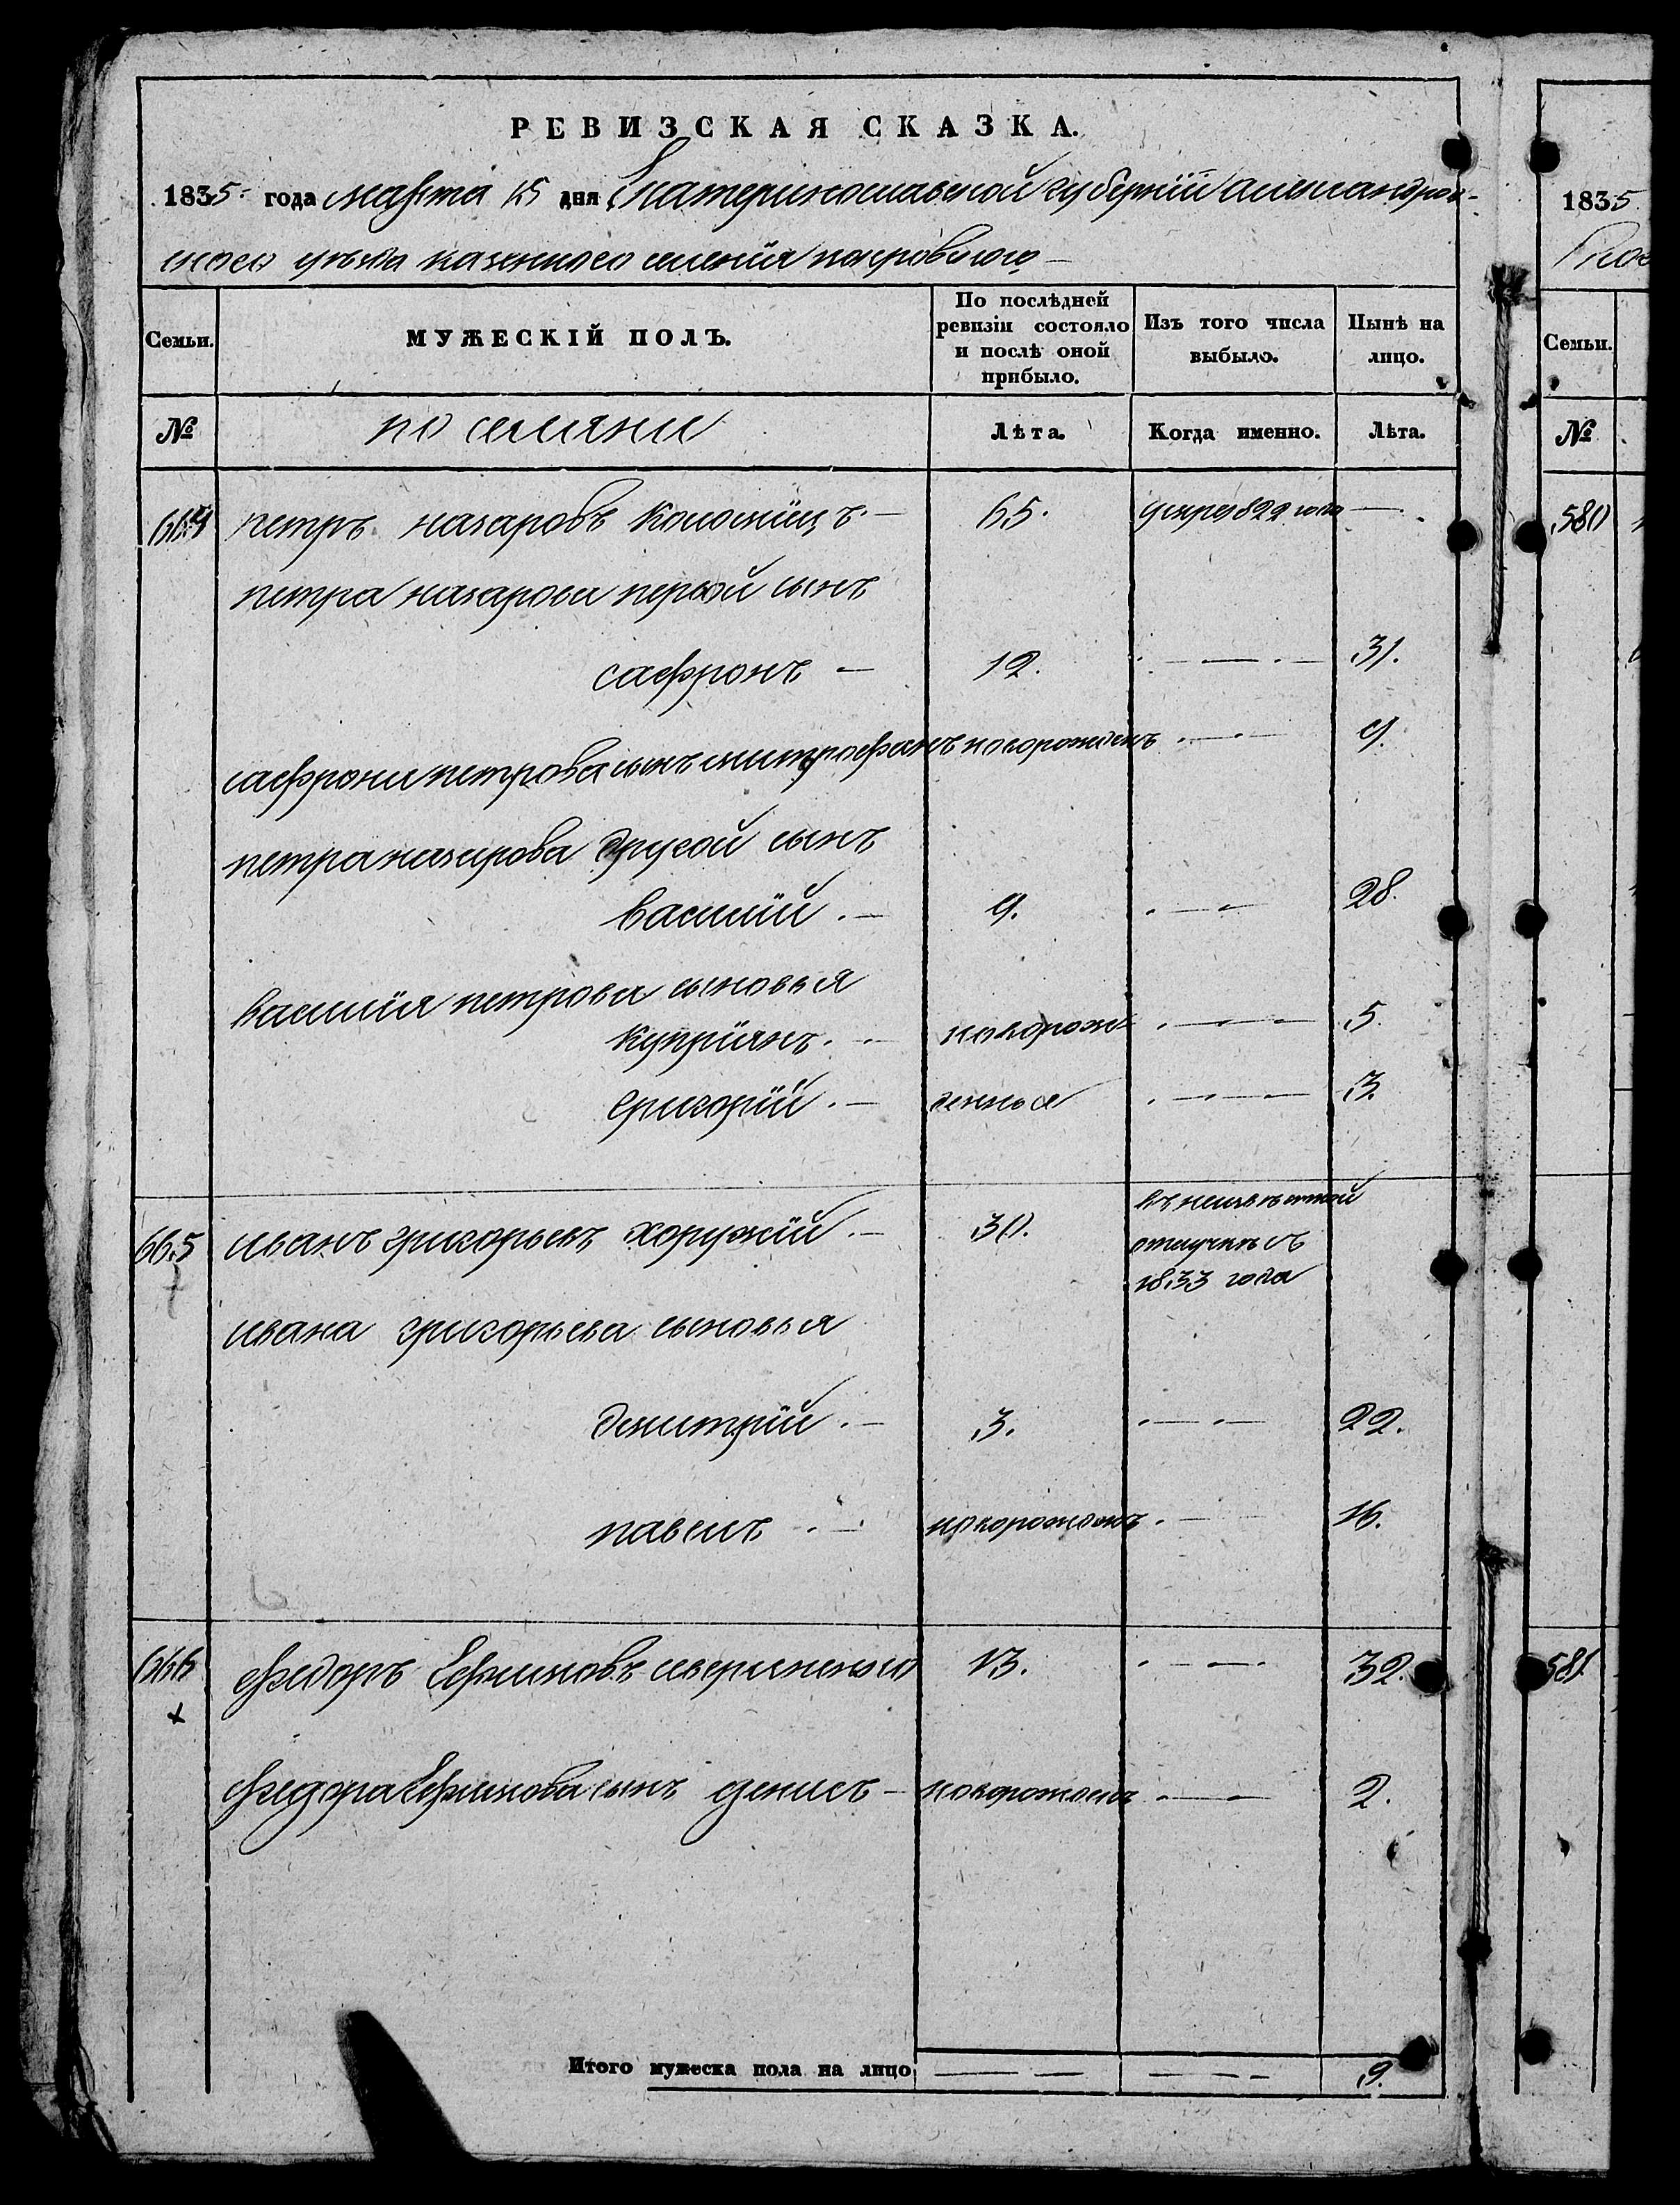 РЕВИЗСКАЯ СКАЗКА.
1835 года марта 15 дня Екатеринославской губерніи александров-
скаго уѣзда казеннаго селенія покровскаго
Семьи.
МУЖЕСКІЙ ПОЛЪ.
По послѣдней ревизіи состояло и послѣ оной прибыло.
Изъ того числа выбыло.
Нынѣ на лицо.
№
Лѣта.
Когда именно.
Лѣта.
664 петръ назаровъ Коломіецъ.— 65. умре 822 года —
петра назарова первой сынъ
сафронъ — 12. 31.
сафрона петрова сынъ митрофанъ новорожденъ 9.
петра назарова другой сынъ
василій.— 9. 28.
василія петрова сыновья
купріянъ.— новорож 5.
григорій.— денныя 3.
665 иванъ григорьевъ хоружій.— 30. въ неизвѣстной
отлучкѣ съ
1833 года
ивана григорьева сыновья
дмитрій.— 3. 22.
павелъ новорожденъ 16.
666 федоръ Ефимовъ 13. 32.
федора Ефимова сынъ денисъ — новорожденъ 2.
Итого мужеска пола на лицо 9.
1835
Семьи.
№
580
581